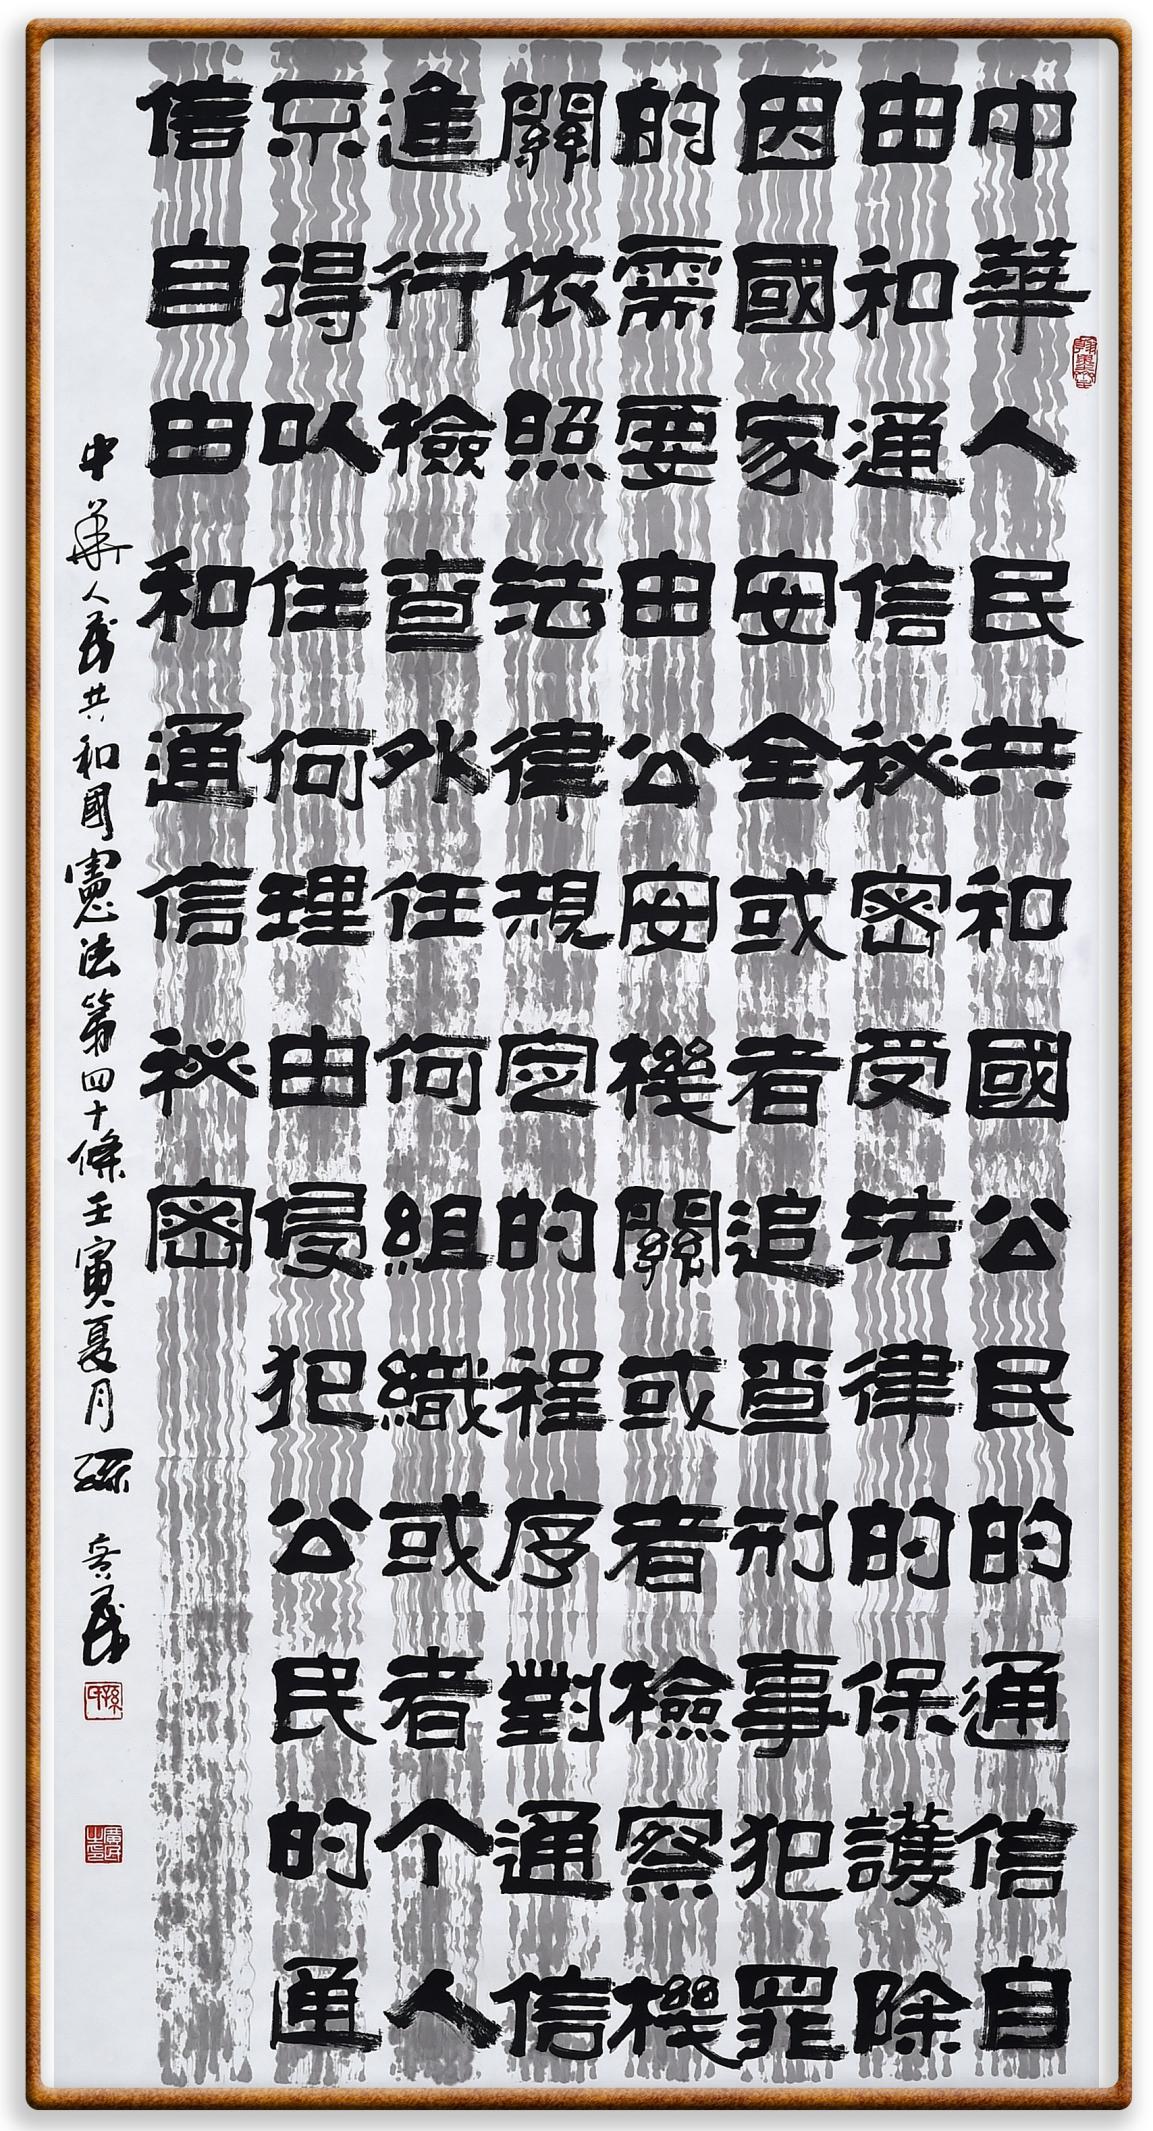 中華人民共和國公民的通信自
由和通信秘密受法律的保護除
因國家安全或者追查刑事犯罪
的需要由公安機關或者檢察機
關依照法律規定的程序對通信
進行檢查外任何組織或者个人
不得以任何理由侵犯公民的通
信自由和通信秘密
中華人民共和國憲法第四十條壬寅夏月孫